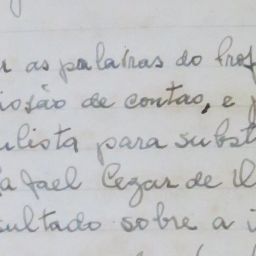 as palavras do Prof
de contas, e
ulista para subst
Rafael Cezar de
sultado sobre a